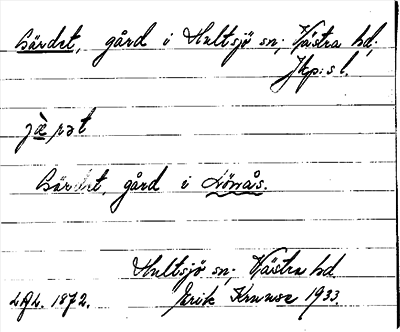 Gärdet, gård i Hultsjö sn; Västra hd;
Jkp:s l.
jæ̀ rət
Gärdet, gård i Lönnås.
Hultsjö sn; Västra hd
1872. Erik Kruuse 1933.